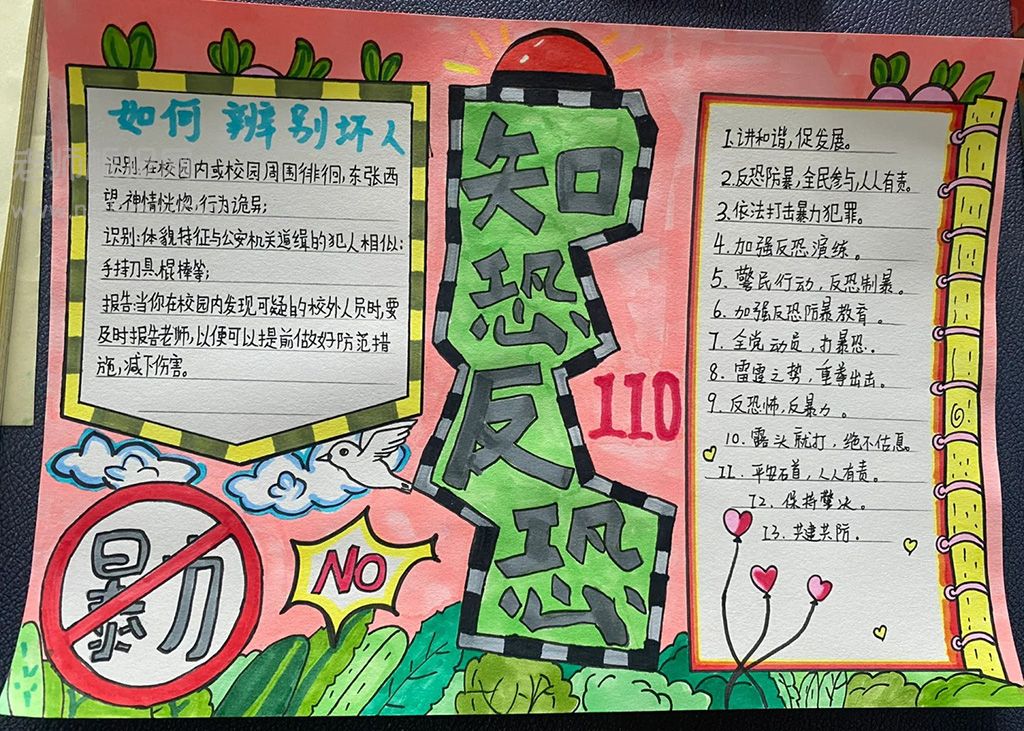 如何辨别坏人
识别:在校园内或校园周围徘徊,东张西
望,神情恍惚,行为诡异;
识别:体貌特征与公安机关通缉的犯人相似;
手持刀具,棍棒等;
报告:当你在校园内发现可疑的校外人员时,要
及时报告老师,以便可以提前做好防范措
施,减下伤害。
暴力
NO
知恐反恐
110
1.讲和谐,促发展。
2.反恐防暴,全民参与,人人有责。
3.依法打击暴力犯罪。
4.加强反恐演练。
5.警民行动,反恐制暴。
6.加强反恐防暴教育。
7.全党动员,打暴恐.。
8.雷霆之势,重拳出击。
9.反恐怖,反暴力。
10.露头就打,绝不估息。
11.平安石首,人人有责。
12.保持警决。
13.共建共防。